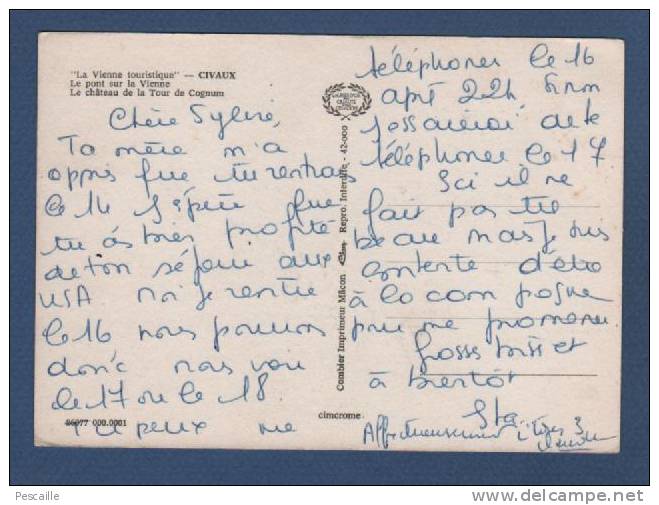 "La Vienne touristique" — CIVAUX
Le pont sur la Vienne
Le château de la Tour de Cognum
Chère Sylvie,
Ta mère m'a
appris que tu rentrais
le 14 J'espère que
tu as très profité
de ton séjour aux
USA moi je rentre
le 16 nous pouvons
donc nous voir
le 17 ou le 18
Tu peux me
téléphoner le 16
aprè 22h sinon
J'essaierai de te
téléphoner le 17
Ici il ne
fait pas très
beau mais Je suis
contente d'être
à la campagne
pour me promener
Gross biss et
à bientôt
Affectueusement
86077 000.0001
cimcrome
Combier Imprimeur Mâcon
Repro. Interdite - 42-000
Pescaille
www.delcampe.net